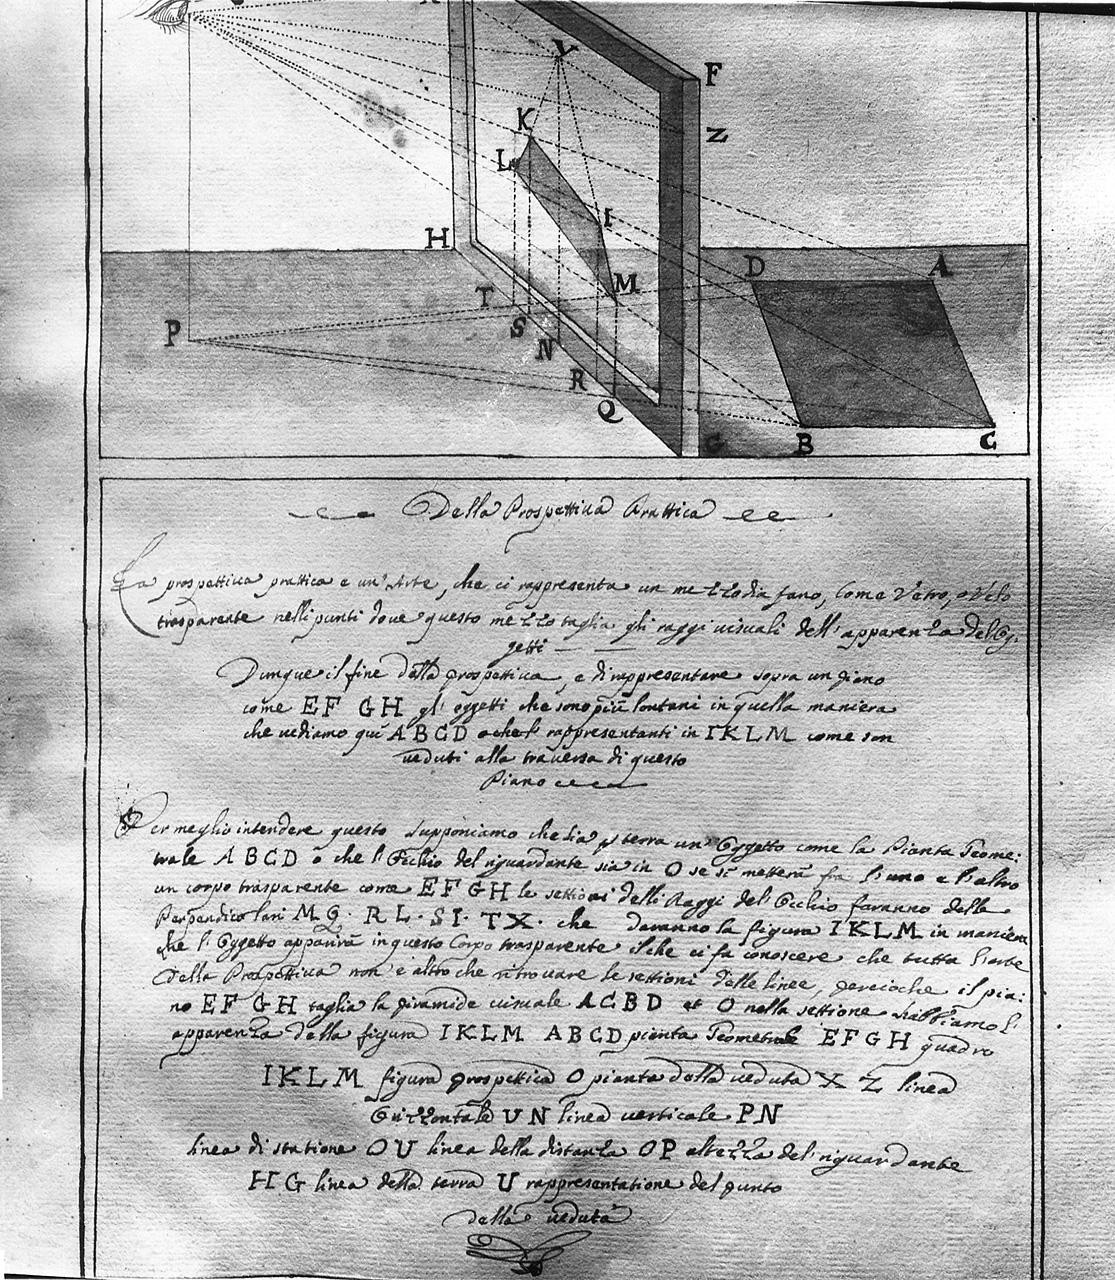 F
V
Z
K
L
I
H
D
A
M
T
S
P
N
R
Q
G
B
C
Della Prospettiua Prattica
La prospettiua prattica e un' Arte, che ci rappresenta un mezzo diafano, Come Vetro, o Velo
trasparente nelli punti doue questo mezzo taglia gli raggi uisuali dell' apparenza del Og,
getti
Dunque il fine della prospettiua, e di rappresentare sopra un piano
come EF GH gl' oggetti che sono più lontani in quella maniera
che uediamo qui ABCD o che l' rappresentanti in IKLM come son
ueduti alla trauersa di questo
Piano
Per meglio intendere questo supponiamo che sia p terra un' Oggetto come la Pianta Geome:
trale ABCD o che l' Occhio del riguardante sia in O se si metterà fra l' uno e l' altro
un corpo trasparente come EFGH le settioni delli Raggi del' Occhio faranno delle
Perpendicolari MQ. RL. SI. TX. che daranno la figura IKLM in maniera
che l' Oggetto apparirà in questo Corpo trasparente il che ci fa conoscere che tutta l' arte
Della Prospettiua non è altro che ritrouare le settioni delle linee, percioche il pia:
no EF GH taglia la piramide uisuale ACBD et O nella settione habbiamo l'
apparenza della figura IKLM ABCD pianta Geometrale EFGH quadro
IKLM figura prospettica O pianta della ueduta X Z linea
Orizzontale UN linea uerticale PN
linea di statione OU linea della distanza OP altezza del' riguardante
HG linea della terra U rappresentatione del punto
della ueduta